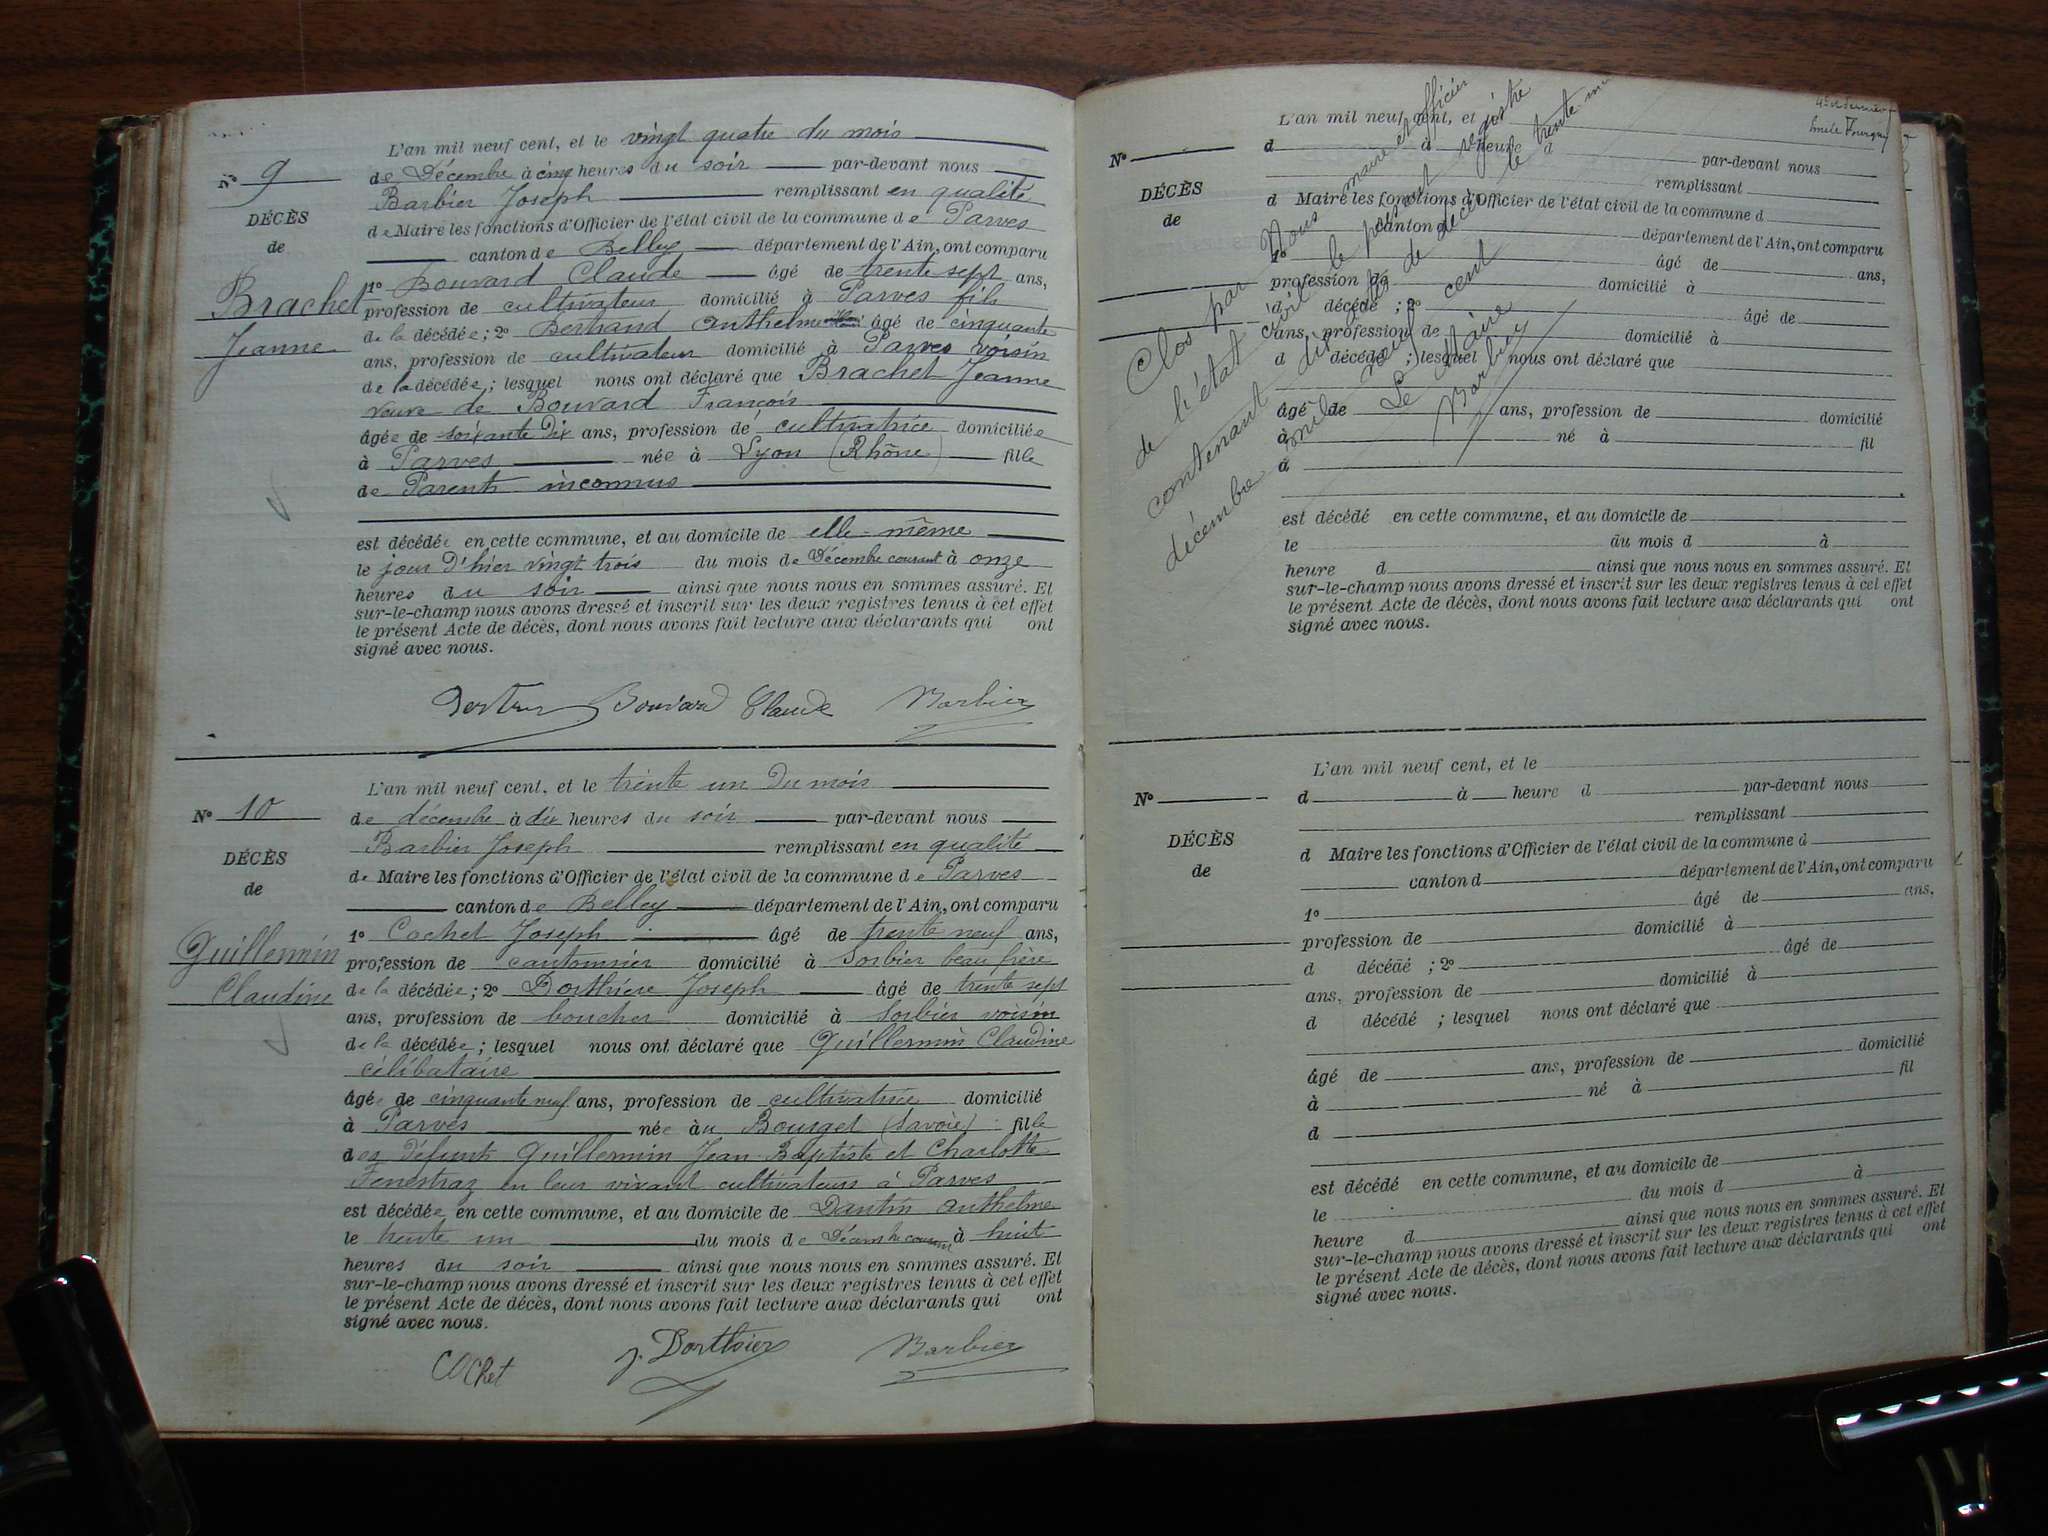 L'an mil neuf cent, et le vingt quatre du mois
N° 9
de Décembre à cinq heures du soir par-devant nous
Barbier Joseph remplissant en qualité
DÉCÈS
de Maire les fonctions d'Officier de l'état civil de la commune de Parves
de
canton de Belley département de l'Ain, ont comparu
Brachet
1° Bouvard Claude âgé de trente sept ans,
profession de cultivateur domicilié à Parves fils
Jeanne
de la décédée; 2° Bertrand Anthelme âgé de cinquante
ans, profession de cultivateur domicilié à Parves voisin
de la décédée; lesquel nous ont déclaré que Brachet Jeanne
veuve de Bouvard François
âgée de soixante dix ans, profession de cultivatrice domiciliée
à Parves née à Lyon (Rhône) fille
de Parents inconnus
est décédée en cette commune, et au domicile de elle-même
le jour d'hier vingt trois du mois de Décembre courant à onze
heures du soir ainsi que nous nous en sommes assuré. Et
sur-le-champ nous avons dressé et inscrit sur les deux registres tenus à cet effet
le présent Acte de décès, dont nous avons fait lecture aux déclarants qui ont
signé avec nous.
Bouvard Claude Barbier
L'an mil neuf cent, et le trente un du mois
N° 10
de décembre à dix heures du soir par-devant nous
Barbier Joseph remplissant en qualité
DÉCÈS
de Maire les fonctions d'Officier de l'état civil de la commune de Parves
de
canton de Belley département de l'Ain, ont comparu
Guillermin
1° Cochet Joseph âgé de trente neuf ans,
profession de cantonnier domicilié à Sorbier beau frère
Claudine
de la décédée; 2° Dorthière Joseph âgé de trente sept
ans, profession de boucher domicilié à Sorbier voisin
de la décédée; lesquel nous ont déclaré que Guillermin Claudine
célibataire
âgée de cinquante neuf ans, profession de cultivatrice domicilié
à Parves née au Bourget (Savoie) fille
des défunts Guillermin Jean-Baptiste et Charlotte
Fenestraz en leur vivant cultivateurs à Parves
est décédée en cette commune, et au domicile de Dantin Anthelme
le trente un du mois de Décembre courant à huit
heures du soir ainsi que nous nous en sommes assuré. Et
sur-le-champ nous avons dressé et inscrit sur les deux registres tenus à cet effet
le présent Acte de décès, dont nous avons fait lecture aux déclarants qui ont
signé avec nous.
Cochet J. Dorthier Barbier
L'an mil neuf cent, et
N°
d à heure d par-devant nous
remplissant
DÉCÈS
d Maire les fonctions d'Officier de l'état civil de la commune d
de
canton d département de l'Ain, ont comparu
1° âgé de ans,
profession de domicilié à
d décédé ; 2° âgé de
ans, profession de domicilié à
d décédé ; lesquel nous ont déclaré que
âgé de ans, profession de domicilié
à né à fil
d
est décédé en cette commune, et au domicile de
le du mois d à
heure d ainsi que nous nous en sommes assuré. Et
sur-le-champ nous avons dressé et inscrit sur les deux registres tenus à cet effet
le présent Acte de décès, dont nous avons fait lecture aux déclarants qui ont
signé avec nous.
Clos par Nous maire et officier
de l'état civil le présent registre
contenant dix actes de décès le trente
décembre mil neuf cent
Le Maire
Barbier
L'an mil neuf cent, et le
N°
d à heure d par-devant nous
remplissant
DÉCÈS
d Maire les fonctions d'Officier de l'état civil de la commune d
de
canton d département de l'Ain, ont comparu
1° âgé de ans,
profession de domicilié à
d décédé ; 2° âgé de
ans, profession de domicilié à
d décédé ; lesquel nous ont déclaré que
âgé de ans, profession de domicilié
à né à fil
d
est décédé en cette commune, et au domicile de
le du mois d à
heure d ainsi que nous nous en sommes assuré. Et
sur-le-champ nous avons dressé et inscrit sur les deux registres tenus à cet effet
le présent Acte de décès, dont nous avons fait lecture aux déclarants qui ont
signé avec nous.